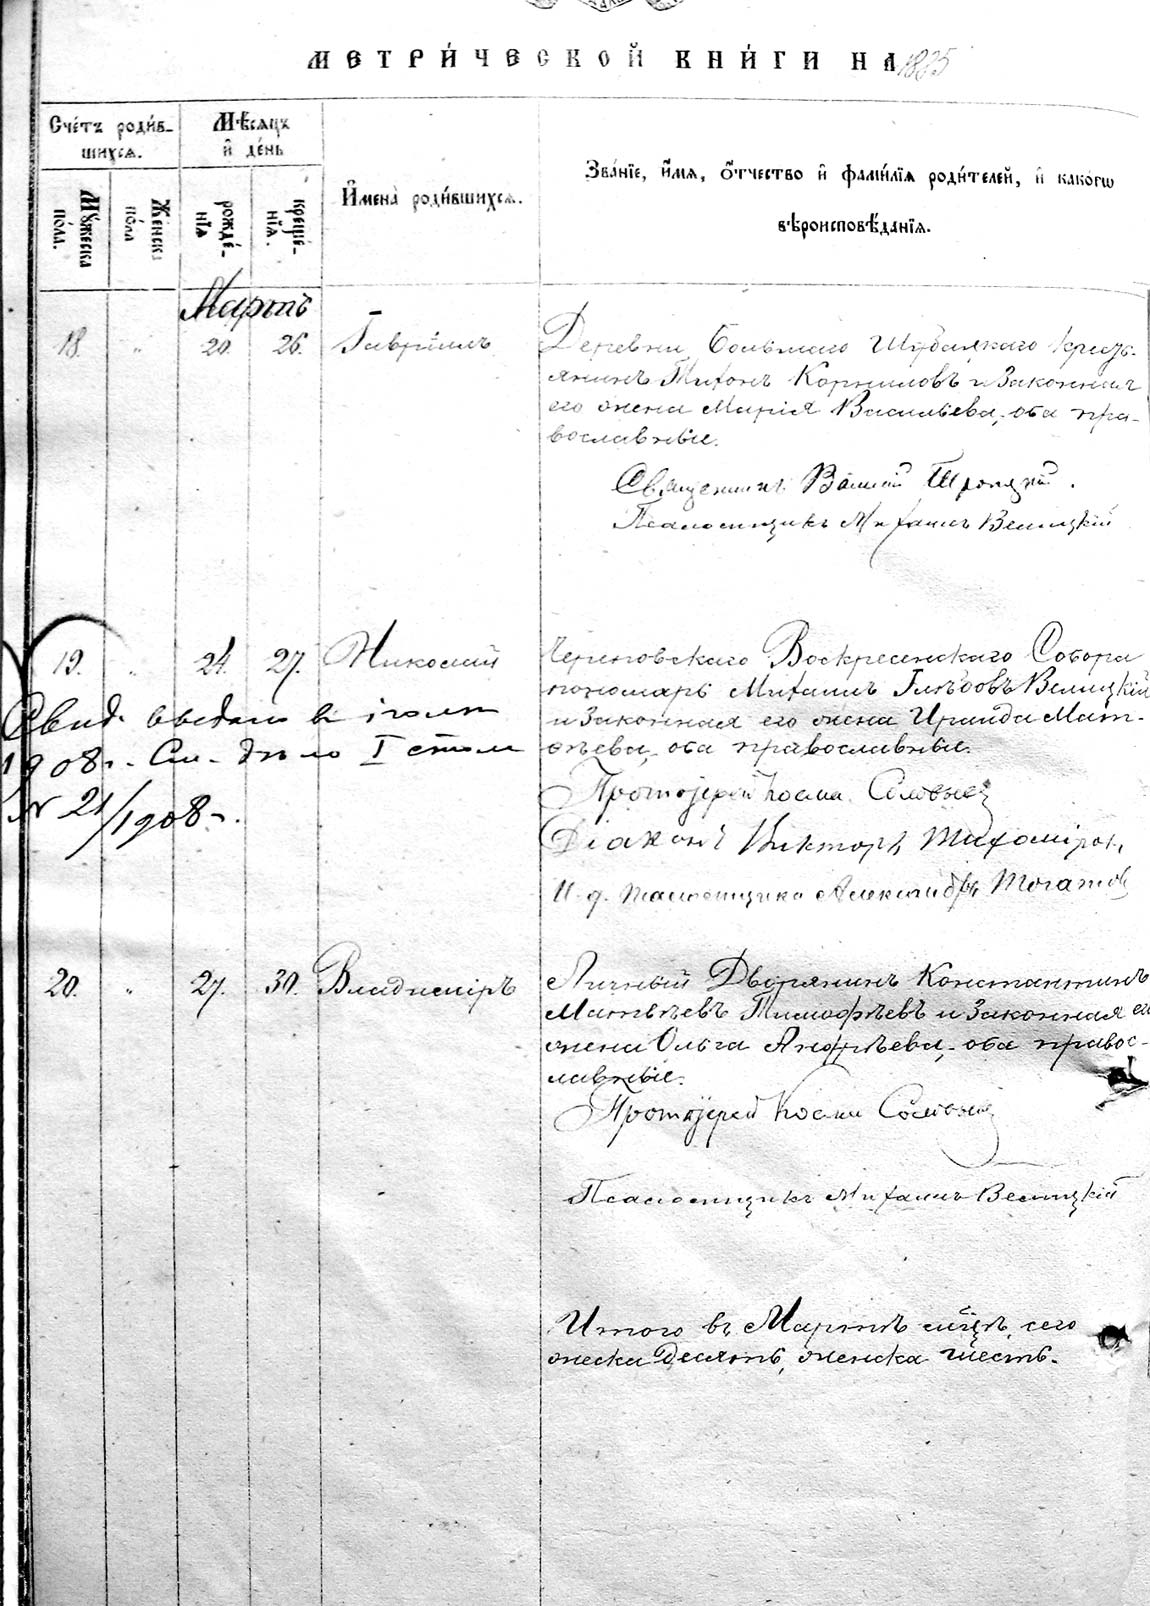 МЕТРИ́ЧЕСКОЙ КНИ́ГИ НА 1885
Сче́тъ роди́в-
шихся.
Мѣ́сяцъ
и҆ де́нь
Му́жеска
по́ла.
Же́нска
по́ла
рожде́-
нїя
креще́-
нїя.
И҆мена̀ роди́вшихся.
Зва́нїе, и҆́мя, ѻ҆́тчество и҆ фами́лїя роди́телей, и҆ како́гѡ
вѣроисповѣ́данїя.
Мартъ
18. " 20. 26. Гаврiилъ
Деревни Большаго Шудацкаго кресть-
янинъ Тихонъ Корниловъ и законная
его жена Марія Васильева, оба пра-
вославные.
Священникъ Василій Троицкій.
Псаломщикъ Михаилъ Велицкій
19. " 24. 27. Николай
Череповскаго Воскресенскаго Собора
пономарь Михаилъ Глѣбовъ Велицкій
и законная его жена Ираида Мат-
ѳѣева, оба православные.
Протоіерей Косма Соловьевъ
Діаконъ Викторъ Тихоміровъ
И. д. псаломщика Александръ
Свид. выдано в іюлѣ
1908 г. См. дѣло I стола
№ 21/1908 г.
20. " 27. 30. Владиміръ
Личный Дворянинъ Константинъ
Матвѣевъ Тимофѣевъ и законная его
жена Ольга Андрѣева, оба правос-
лавные.
Протоіерей Косма Соловьевъ
Псаломщикъ Михаилъ Велицкій
Итого въ Мартѣ мцѣ, сего
жеска десять, женска шесть.